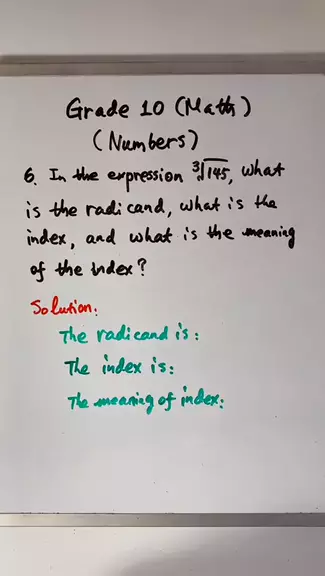 Grade 10 (Math)
(Numbers)
6. In the expression ³√145, what
is the radicand, what is the
index, and what is the meaning
of the index?
Solution:
The radicand is:
The index is:
The meaning of index: